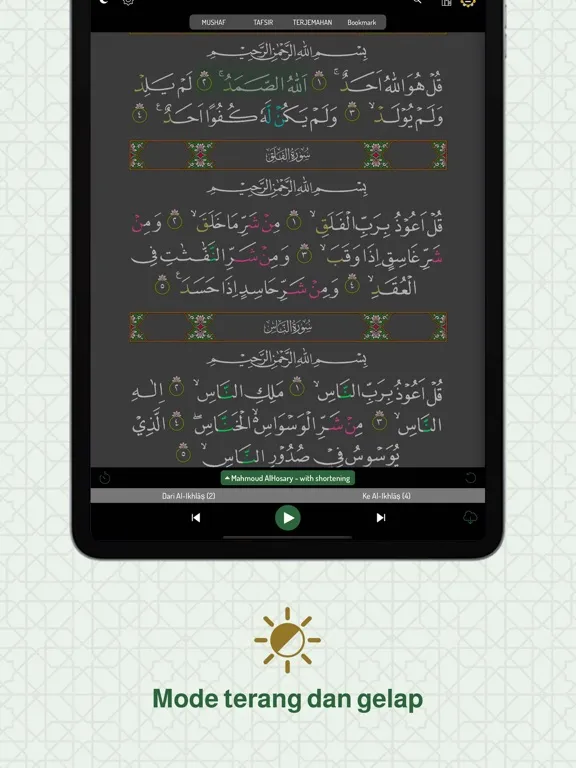 MUSHAF TAFSIR TERJEMAHAN Bookmark
بِسْمِ اللّٰهِ الرَّحْمٰنِ الرَّحِيْمِ
قُلْ هُوَ اللّٰهُ اَحَدٌ ۚ ١ اَللّٰهُ الصَّمَدُ ۚ ٢ لَمْ يَلِدْ
وَلَمْ يُوْلَدْ ۙ ٣ وَلَمْ يَكُنْ لَّهٗ كُفُوًا اَحَدٌ ۚ ٤
سُوْرَةُ الْفَلَقِ
بِسْمِ اللّٰهِ الرَّحْمٰنِ الرَّحِيْمِ
قُلْ اَعُوْذُ بِرَبِّ الْفَلَقِ ۙ ١ مِنْ شَرِّ مَا خَلَقَ ۙ ٢ وَمِنْ
شَرِّ غَاسِقٍ اِذَا وَقَبَ ۙ ٣ وَمِنْ شَرِّ النَّفّٰثٰتِ فِى
الْعُقَدِ ۙ ٤ وَمِنْ شَرِّ حَاسِدٍ اِذَا حَسَدَ ۚ ٥
سُوْرَةُ النَّاسِ
بِسْمِ اللّٰهِ الرَّحْمٰنِ الرَّحِيْمِ
قُلْ اَعُوْذُ بِرَبِّ النَّاسِ ۙ ١ مَلِكِ النَّاسِ ۙ ٢ اِلٰهِ
النَّاسِ ۙ ٣ مِنْ شَرِّ الْوَسْوَاسِ ەۙ الْخَنَّاسِ ۖ ٤ الَّذِيْ
يُوَسْوِسُ فِيْ صُدُوْرِ النَّاسِ ۙ ٥
Mahmoud AlHosary - with shortening
Dari Al-Ikhlāṣ (2) Ke Al-Ikhlāṣ (4)
Mode terang dan gelap